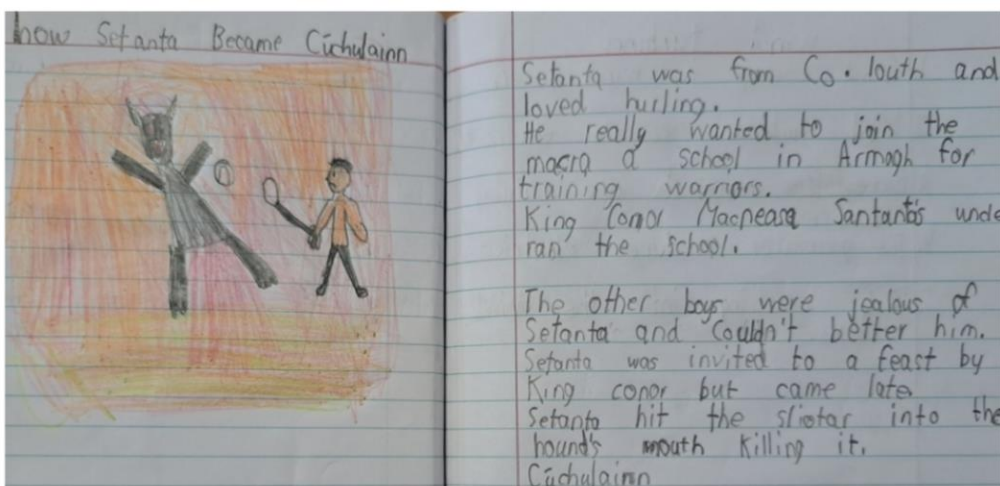 how Setanta Became Cúchulainn
Setanta was from Co. louth and
loved hurling.
He really wanted to join the
macra a school in Armagh for
training warriors.
King Conor Macneasa Santanta's unde
ran the school.
The other boys were jealous of
Setanta and Couldn't better him.
Setanta was invited to a feast by
King conor but came late
Setanta hit the sliotar into the
hound's mouth Killing it.
Cúchulainn